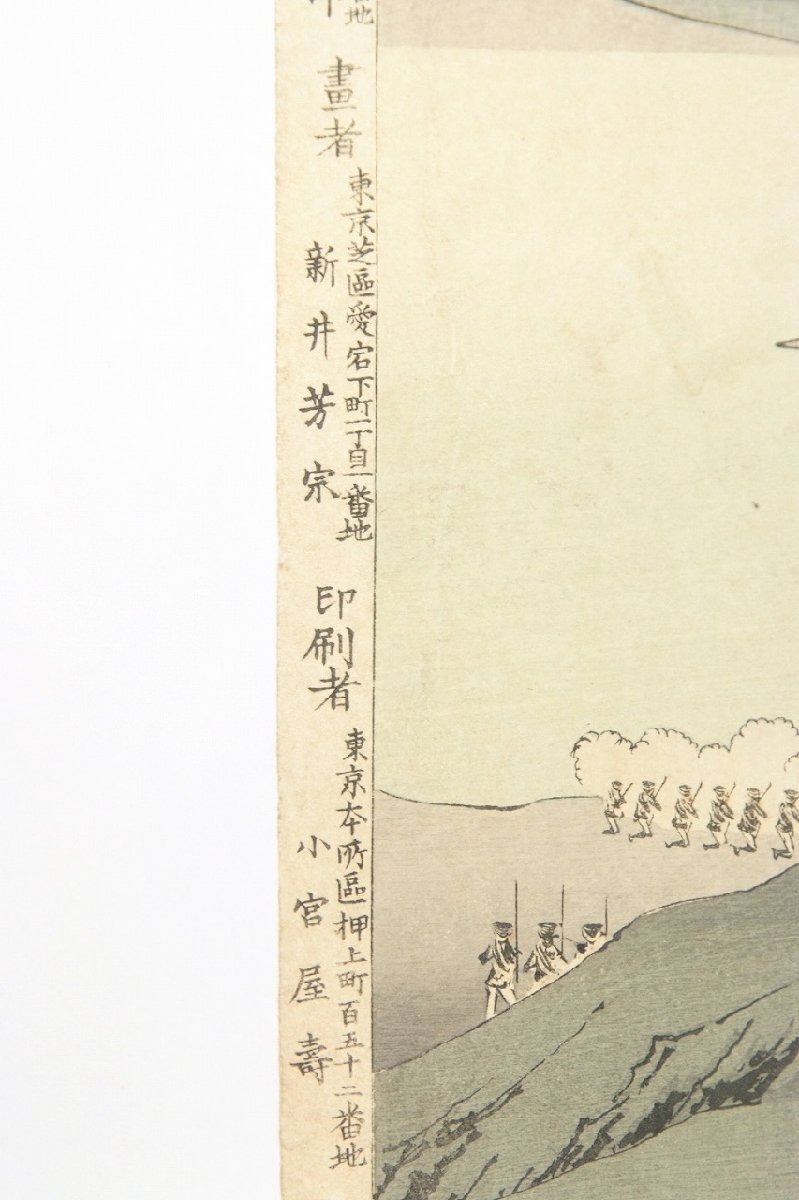 番地
印
畫者
東京芝區愛宕下町一丁目一番地
新井芳宗
印刷者
東京本所區押上町百五十二番地
小宮屋壽